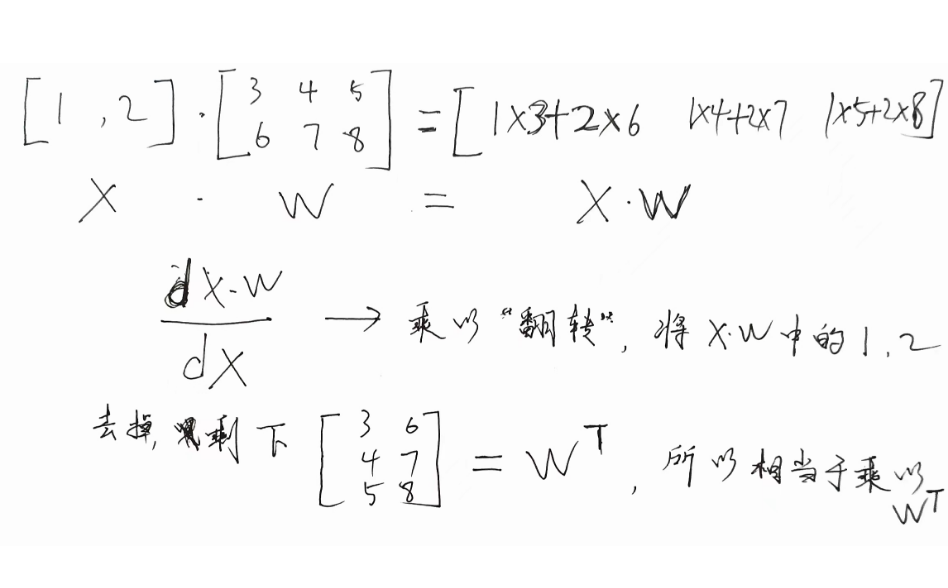 [1, 2] · [3 4 5; 6 7 8] = [1×3+2×6 1×4+2×7 1×5+2×8]
X · W = X·W
dX·W / dX → 乘以“翻转”, 将 X·W 中的 1, 2
去掉, 剩下 [3 6; 4 7; 5 8] = W^T, 所以相当于乘以
W^T